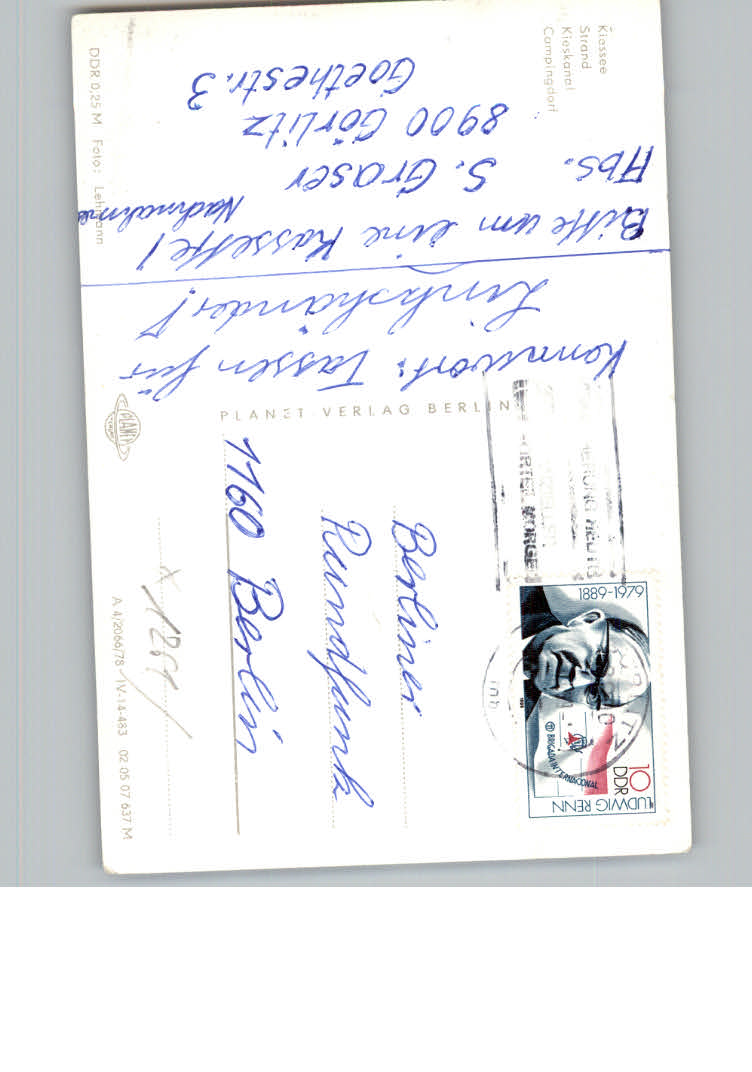 Kiessee
Strand
Kieskanal
Campingdorf
Abs. S. Graser
8900 Görlitz
Goethestr. 3
Bitte um eine Kassette!
Nachnahme
Kennwort: Tassen für
Linkshänder!
DDR 0,25 M Foto: Lehmann
PLANET-VERLAG BERLIN
PLANET
Berliner
Rundfunk
1160 Berlin
A 4/2066/78-IV-14-483 02 05 07 637 M
1889-1979
BRIGADA INTERNACIONAL
10
DDR
LUDWIG RENN